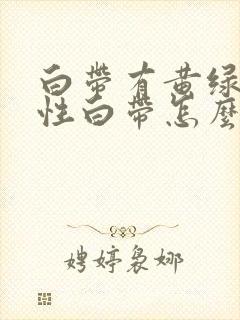 白帶有黄绿
性白帶怎麼
娉婷袅娜